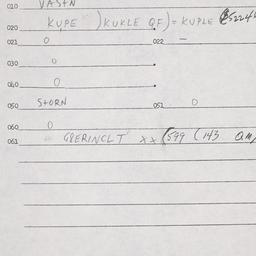 010 VASTN
020 KUPE )KUKLE QF)= KUPLE
021 0 022 —
030 0
040 0
050 STORN 051 0
060 0
061 GPERINCLT xx (599 (143